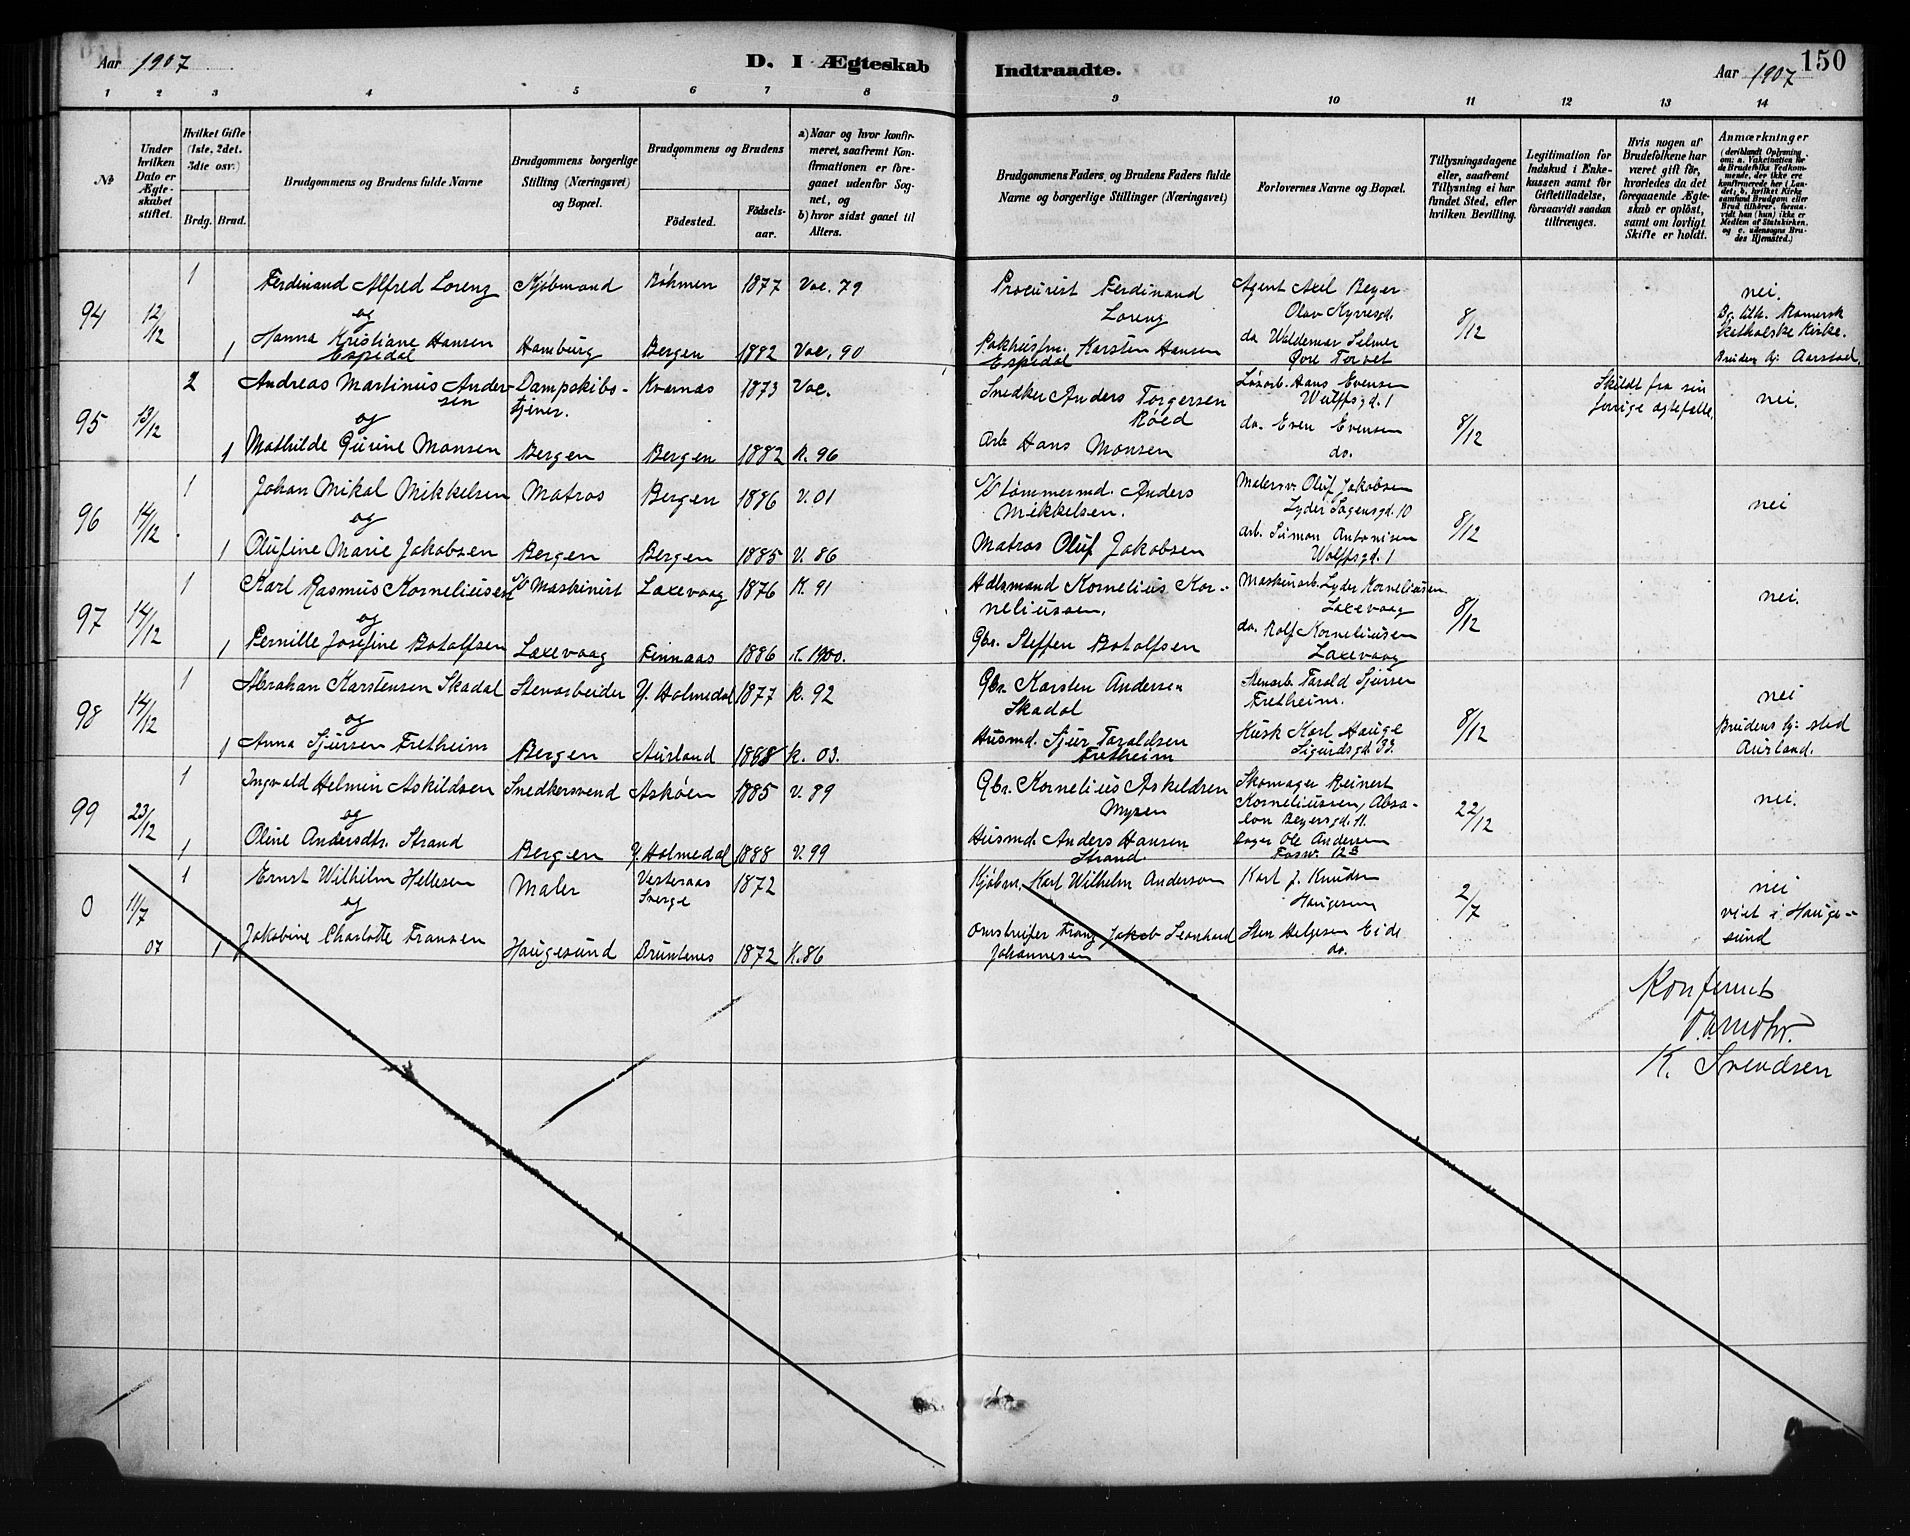 Aar 1907
D. I Ægteskab Indtraadte.
Aar 1907
150
1 2 3 4 5 6 7 8 9 10 11 12 13 14
№
Under hvilken Dato er Ægteskabet stiftet.
Hvilket Gifte (1ste, 2det, 3die osv.)
Brdg. Brud.
Brudgommens og Brudens fulde Navne
Brudgommens borgerlige Stilling (Næringsvei) og Bopæl.
Brudgommens og Brudens
Födested.
Födselsaar.
a) Naar og hvor konfirmeret, saafremt Konfirmationen er foregaaet udenfor Sognet, og
b) hvor sidst gaaet til Alters.
Brudgommens Faders, og Brudens Faders fulde Navne og borgerlige Stillinger (Næringsvei)
Forlovernes Navne og Bopæl.
Tillysningsdagene eller, saafremt Tillysning ei har fundet Sted, efter hvilken Bevilling.
Legitimation for Indskud i Enkekassen samt for Giftetilladelse, forsaavidt saadan tiltrænges.
Hvis nogen af Brudefolkene har været gift för, hvorledes da det foregaaende Ægteskab er oplöst, samt om lovligt Skifte er holdt.
Anmærkninger (deriblandt Oplysning om: a. Vakcination for de Brudefolks Vedkommende, der ikke ere konfirmerede her i Landet; b. hvilket Kirkesamfund Brudgom eller Brud tilhörer, forsaavidt han (hun) ikke er Medlem af Statskirken, og c. udensogns Brudes Hjemsted.)
94 12/12 1 Ferdinand Alfred Lorenz Kjöbmand Böhmen 1877 Vac. 79 Procurist Ferdinand Lorenz Agent Axel Beyer Olav Kyrresgd. 8/12 nei. Bg. tilh. Romersk Katholske Kirke.
og
1 Hanna Kristiane Hansen Espedal Hamburg Bergen 1882 Vac. 90 Pakhusfm. Karsten Hansen Espedal do Waldemar Selmer Övre Torvet Brudens hj: Aarstad.
95 13/12 2 Andreas Martinus Andersen Dampskibstjener. Kvernes 1873 Vac. Snedker Anders Torgersen Röed Lösarb. Hans Evensen Wolffsgd. 1 8/12 Skildt fra sin forrige ægtefælle nei.
og
1 Mathilde Gurine Monsen Bergen Bergen 1882 K. 96 Arb Hans Monsen do. Even Evensen do.
96 14/12 1 Johan Mikal Mikkelsen Matros Bergen 1886 V. 01 Tömmermd. Anders Mikkelsen. Malersv. Oluf Jakobsen Lyder Sagensgd. 10 8/12 nei
og
1 Olufine Marie Jakobsen Bergen Bergen 1885 V. 86 Matros Oluf Jakobsen arb. Simon Antonisen Wolffsgd. 1
97 14/12 1 Karl Rasmus Korneliussen Maskinist Laxevaag 1876 K. 91 Kornelius Korneliussen. Maskinarb. Lyder Korneliussen Laxevaag 8/12 nei.
og
1 Pernille Josefine Botolfsen Laxevaag Finnaas 1886 K. 1900. Gbr. Steffen Botolfsen do. Rolf Korneliussen Laxevaag
98 14/12 1 Abraham Karstensen Skadal Stenarbeider Y. Holmedal 1877 K. 92 Gbr. Karsten Andersen Skadal Stenarb. Tarald Sjursen Fretheim. 8/12 nei
og
1 Anna Sjursen Fretheim Bergen Aurland 1888 K. 03. Husmd. Sjur Taraldsen Fretheim Husk Karl Hauge Sigurdsgd. 33. Brudens hj: sted Aurland.
99 23/12 1 Ingvald Helmin Askildsen Snedkersvend Asköen 1885 V. 89 Gbr. Kornelius Askildsen Myren Skomager Reinert Korneliussen, Absalon Beyersgd. 11. 22/12 nei.
og
1 Oline Andersdtr. Strand Bergen Y. Holmedal 1888 V. 99 Husmd. Anders Hansen Strand Bager Ole Andersen Fosw. 12B
0 11/7 07 1 Ernst Wilhelm Hellesen Maler Vesteraas Sverge 1872 Kjöbm. Karl Wilhelm Anderson Karl J. Knudsen Haugesun 2/7 nei viet i Haugesund
og
1 Jakobine Charlotte Fransen Haugesund Bruntenes 1872 K. 86 Franz Jakob Leonhard Johannesen Sten Helgesen Eide do.
Konferert
K. Svendsen